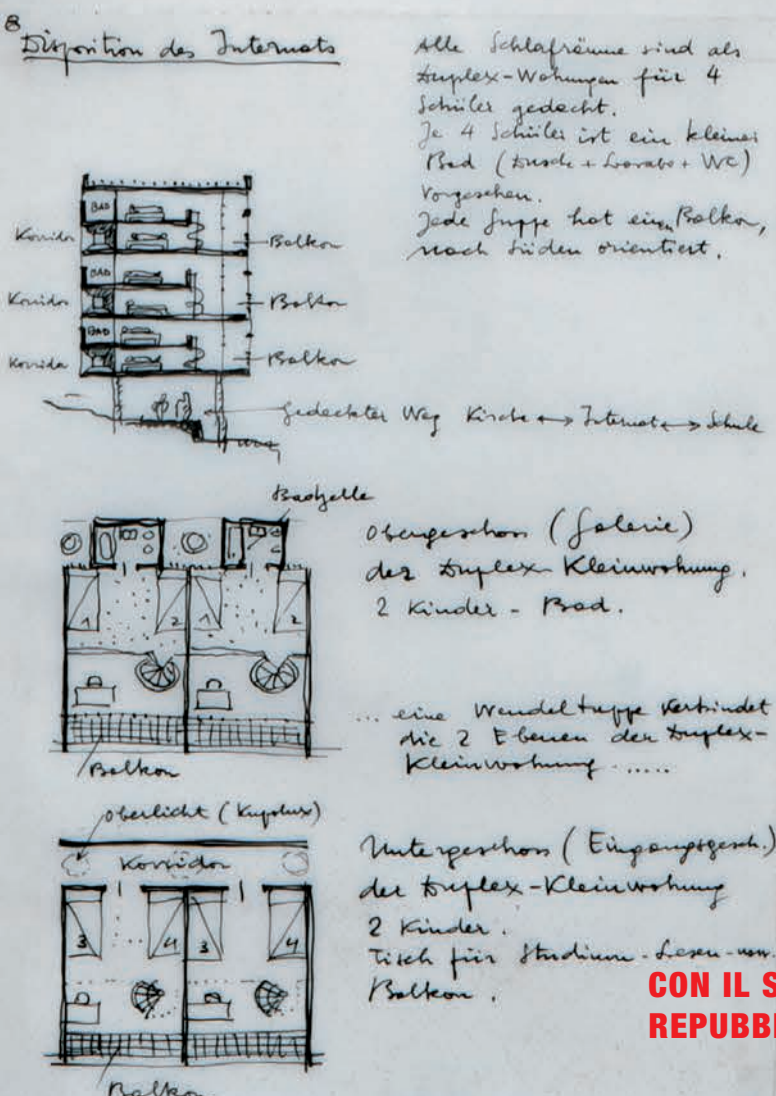 8
Disposition des Internats
Alle Schlafräume sind als
Duplex-Wohungen für 4
Schüler gedacht.
Je 4 Schüler ist ein kleines
Bad (Dusch + Lavabo + WC)
vorgesehen.
Jede Gruppe hat einen Balkon,
nach Süden orientiert.
BAD
Korridor
Balkon
BAD
Korridor
Balkon
BAD
Korridor
Balkon
Gedeckter Weg Kirche ↔ Internat ↔ Schule
Badzelle
1 2 1 2
Balkon
Obergeschoss (Galerie)
der Duplex-Kleinwohnung.
2 Kinder - Bad.
... eine Wendeltreppe verbindet
die 2 Ebenen der Duplex-
Kleinwohnung .....
Oberlicht (Kupolux)
Korridor
3 4 3 4
Balkon
Untergeschoss (Eingangsgesch.)
der Duplex-Kleinwohnung
2 Kinder.
Tisch für Studium - Lesen - usw.
Balkon.
CON IL S
REPUBBL